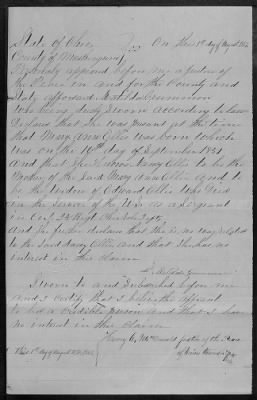 State of Ohio
County of Muskingum } SS On this 1st day of August 186
Personally appeared before me a Justice of
the Peace in and for the County and
State aforesaid Matilda
Who being duly Sworn according to law
declares that She was present at the time
that Mary Ann Ellis was born which
was on the day of September 1851
and that She Nancy Ellis to be the
Mother of the Said Mary Ann Ellis and to
be the Widow of Edward Ellis Who Died
in the Service of the U.S. as a Sergeant
in Co. Ohio Inft
and She further declares that She is no way related
to the Said Nancy Ellis and that She has no
interest in this claim
Matilda
Sworn to and Subscribed before me
and I certify that I believe the affiant
to be a credible person and that I have
no interest in this Claim
Henry C. McDonald Justice of the Peace
this 1st day of August 186